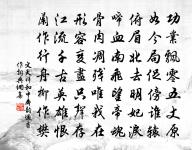 功業飄零五丈原
如今局促傍誰轅
俯眉北去明妃淚
啼血南飛望帝魂
骨肉凋殘唯我在
形容變盡只聲存
江流千古英雄恨
蘭作行舟柳作樊